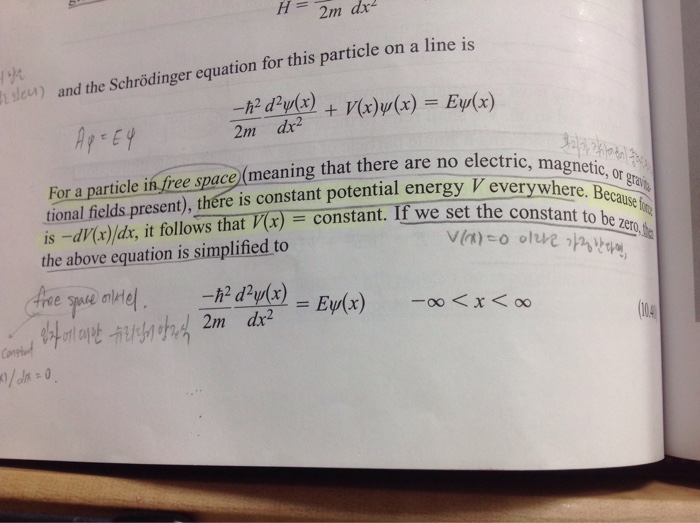 H =
2m dx²
and the Schrödinger equation for this particle on a line is
−ħ² d²ψ(x)/2m dx² + V(x)ψ(x) = Eψ(x)
Ĥψ = Eψ
For a particle in free space (meaning that there are no electric, magnetic, or
tional fields present), there is constant potential energy V everywhere. Because
is −dV(x)/dx, it follows that V(x) = constant. If we set the constant to be zero,
V(x)=0 이라고 가정한다면,
the above equation is simplified to
free space 에서
−ħ² d²ψ(x)/2m dx² = Eψ(x) −∞ < x < ∞
입자에 대한
constant
/dx = 0.